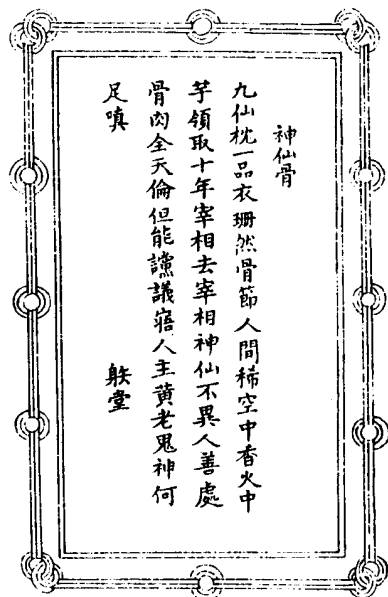 神仙骨
九仙枕一品衣珊然骨節人間稀空中香火中
芋領取十年宰相去宰相神仙不異人善處
骨肉全天倫但能讜議寤人主黃老鬼神何
足嗔
堂